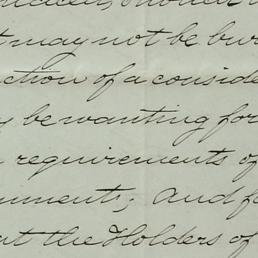 may not be bur
ction of a conside
be wanting for
requirements of
nments; and f
at the Holders of